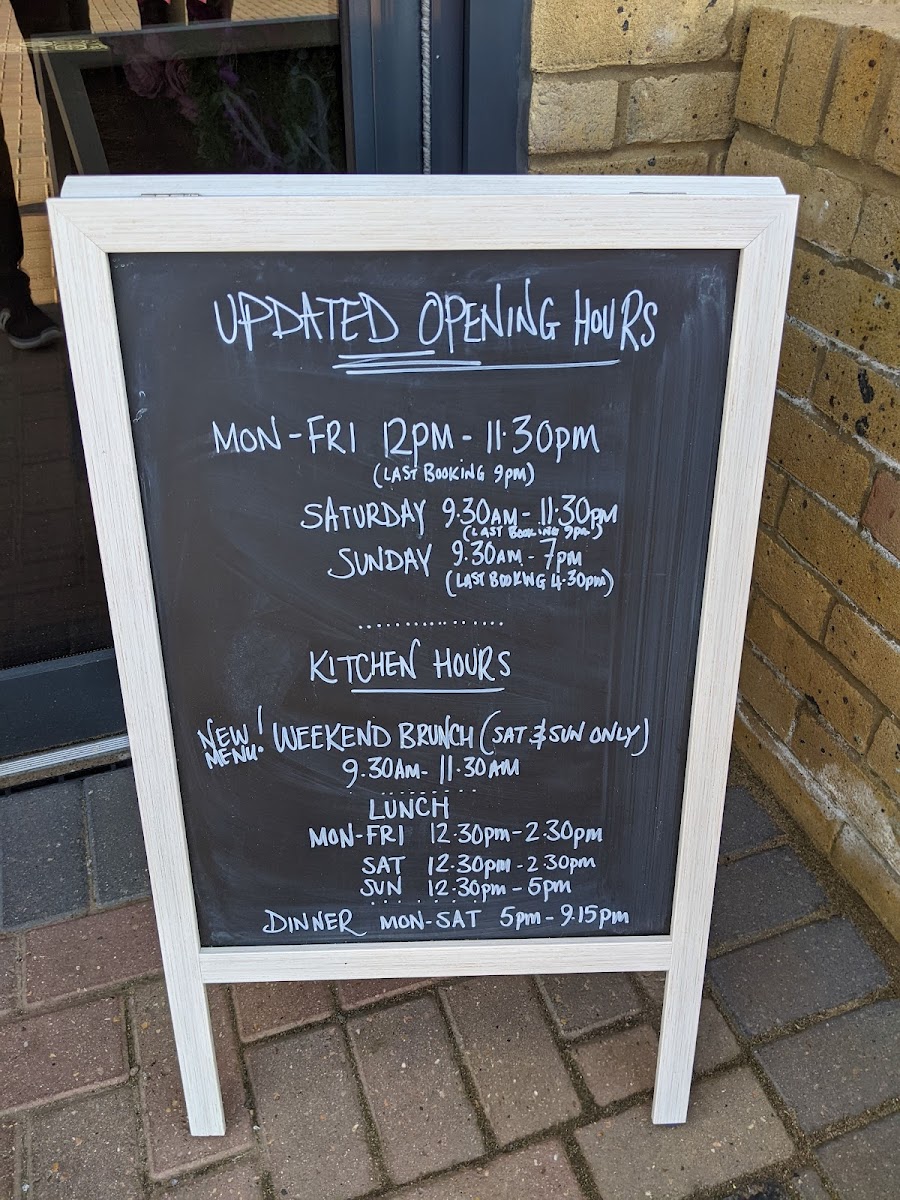 UPDATED OPENING HOURS
MON-FRI 12PM - 11.30pm
(LAST BOOKING 9pm)
SATURDAY 9.30AM - 11.30pm
(LAST BOOKING 9pm)
SUNDAY 9.30AM - 7pm
(LAST BOOKING 4.30pm)
KITCHEN HOURS
NEW MENU! WEEKEND BRUNCH (SAT & SUN ONLY)
9.30AM - 11.30AM
LUNCH
MON-FRI 12.30pm - 2.30pm
SAT 12.30pm - 2.30pm
SUN 12.30pm - 5pm
DINNER MON-SAT 5pm - 9.15pm